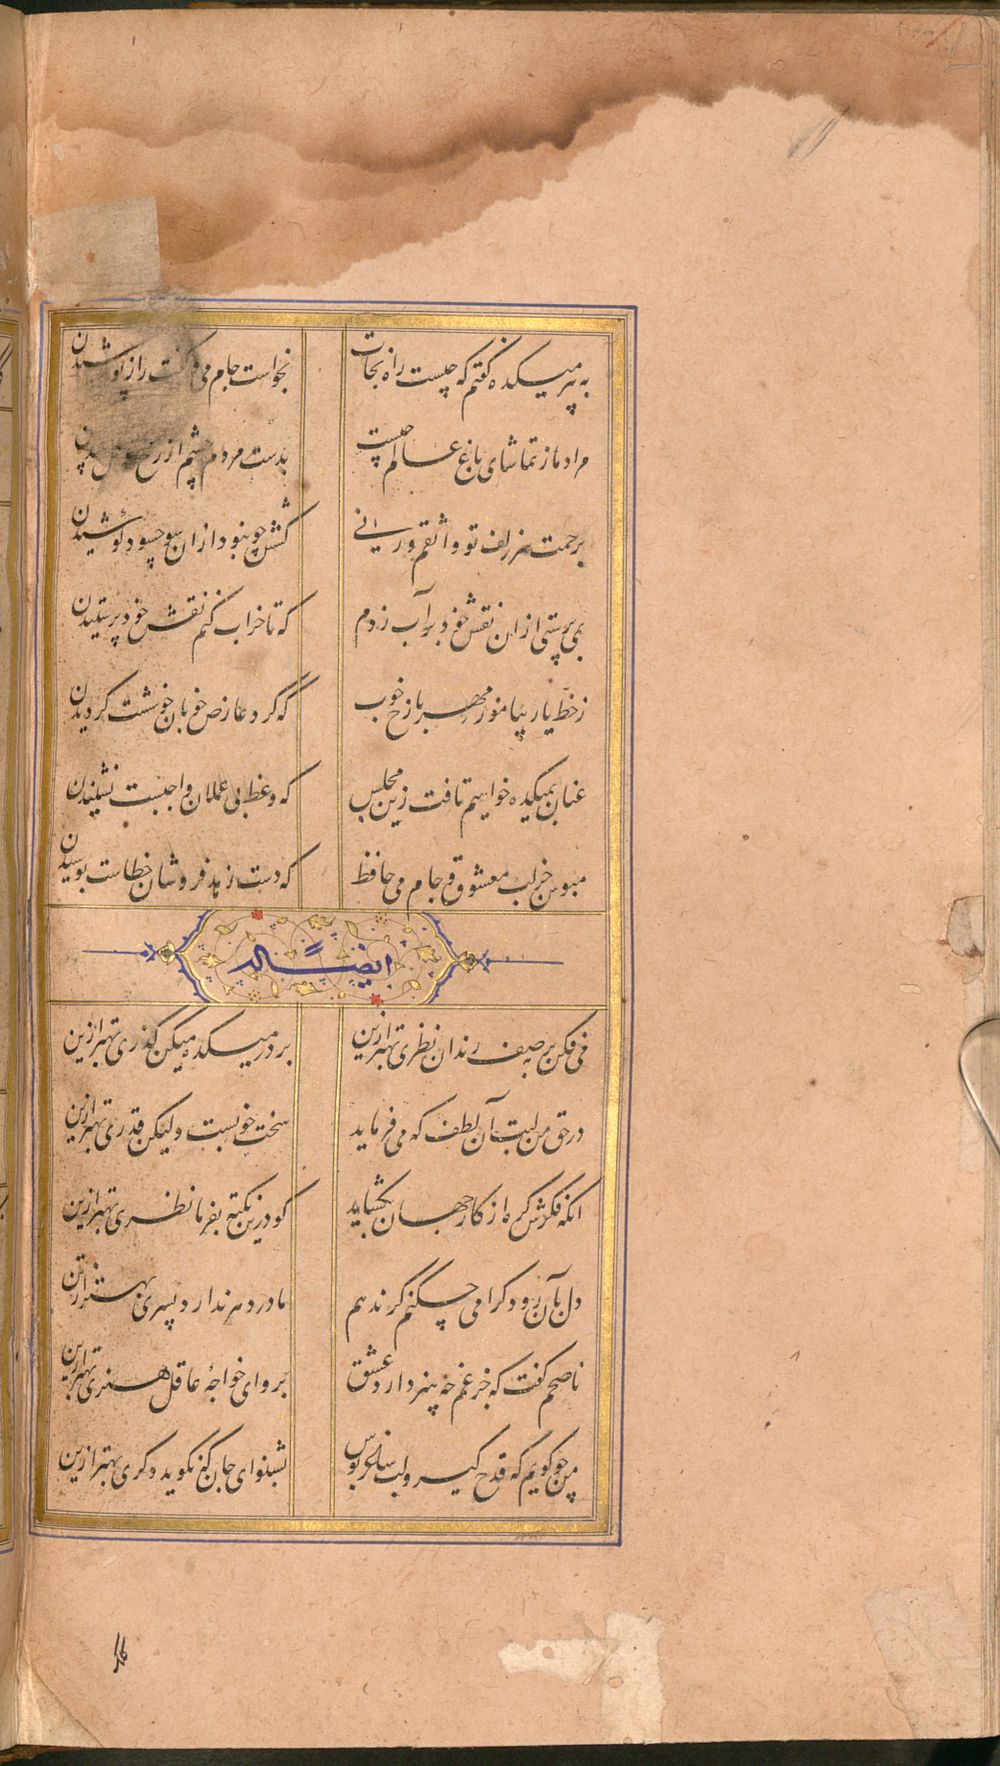 به پیر میکده گفتم که چیست راه نجات بخواست جام می و گفت راز پوشیدن
مراد ما ز تماشای باغ عالم چیست بدست مردم چشم از رخ تو گل چیدن
برحمت سر زلف تو واثقم ورنی کشش چو نبود از ان سو چسود کوشیدن
بمی پرستی از ان نقش خود بر آب زدم که تا خراب کنم نقش خود پرستیدن
ز خطّ یار بیاموز مهر با رخ خوب که گرد عارض خوبان خوشست گردیدن
عنان بمیکده خواهیم تافت زین مجلس که وعظ بی عملان واجبست نشنیدن
مبوس جز لب معشوق و جام می حافظ که دست زهد فروشان خطاست بوسیدن
ایضاً له
می فکن بر صف رندان نظری بهتر ازین بر در میکده میکن گذری بهتر ازین
در حق من لبت آن لطف که می فرماید سخت خوبست ولیکن قدری بهتر ازین
انکه فکرش گره از کار جهان بگشاید گو درین نکته بفرما نظری بهتر ازین
دل بآن رود گرامی چکنم گر ندهم مادر دهر ندارد پسری بهتر ازین
ناصحم گفت که جز غم چه هنر دارد عشق برو ای خواجهٔ عاقل هنری بهتر ازین
من چو گویم که قدح گیر و لب ساغر بوس بشنو ای جان که نگوید دگری بهتر ازین